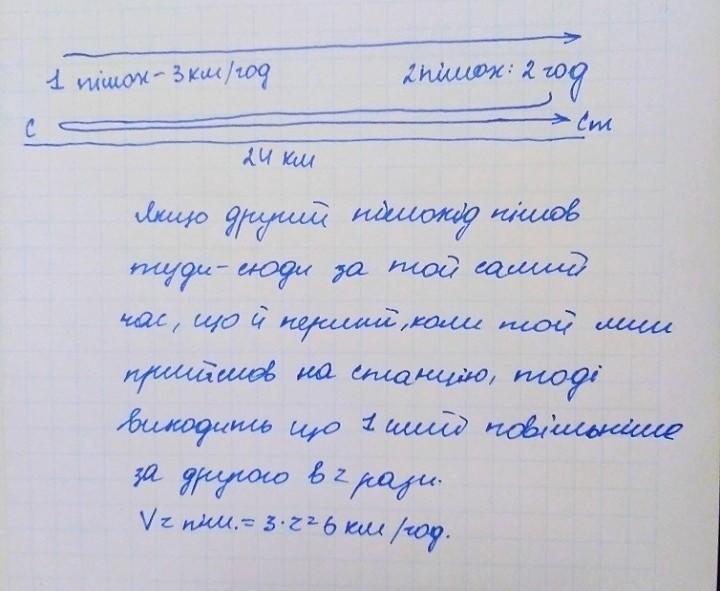 1 пішох - 3 км/год 2 пішох: 2 год
С Ст
24 км
Якщо другий пішохід пішов
туди-сюди за той самий
час, що й перший, коли той лиш
прийшов на станцію, тоді
виходить що 1 йшов повільніше
за другого в 2 рази.
V2 піш. = 3·2=6 км/год.